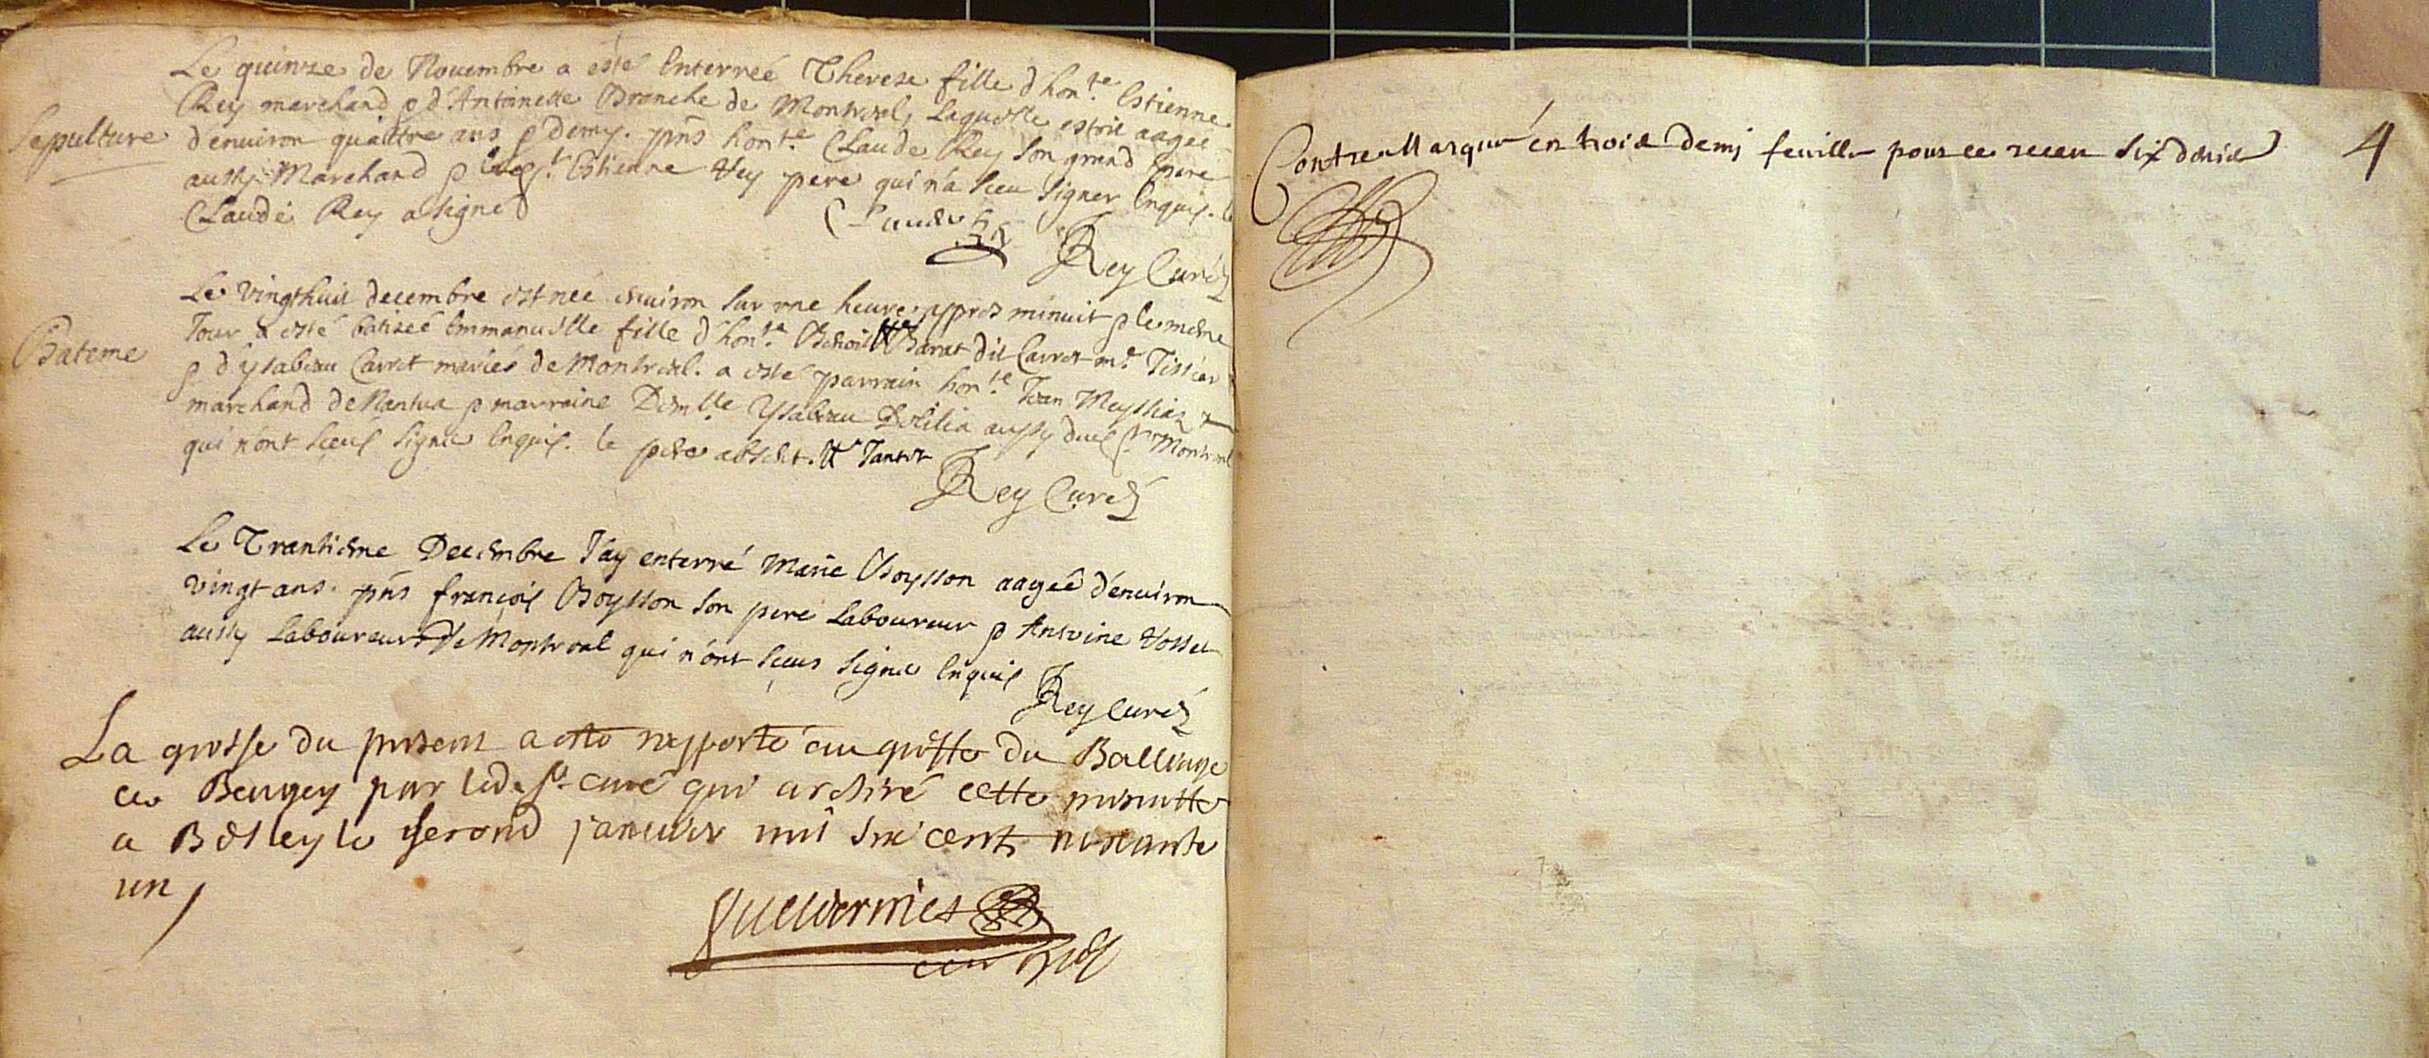 Le quinze de Novembre a esté enterreé Therese fille d'hon.te Estienne
Rey marchand & d'Antoinette Branche de Montreal, laquelle estoit aageé
Sepulture
d'enuiron quattre ans & demy. pñs hon.te Claude Rey son grand pere
aussy Marchand & Estienne Rey pere qui n'a sceu signer enquis. le
Claude Rey a signé
Claude Rey
Rey Curé
Le vingthuit decembre est neé enuiron sur une heure appres minuit & le mesme
Jour a esté batizeé Emmanuelle fille d'hon.te Benoit Barat dit Carret m.e Tissier
Bateme
& d'ysabeau Carret mariés de Montreal. a esté parrain hon.te Jean
marchand de Nantua & marraine Dem.lle Ysabeau aussy dud. Montreal
qui n'ont sceus signer enquis. le pere absent.
Rey Curé
Le Trantiéme Decembre J'ay enterré Marie Boysson aageê d'enuiron
vingt ans. pñs françois Boysson son pere Laboureur & Antoine Vosset
aussy Laboureur de Montreal qui n'ont sceus signer enquis
Rey Curé
La grosse du present a esté rapporté au greffe du Balliage
de Beugey par led. s.r curé qui a retiré cette minutte
a Belley le second januier mil six cent nonante
un
Contre Marqué en trois demj feuille pour ce receu six denier
4